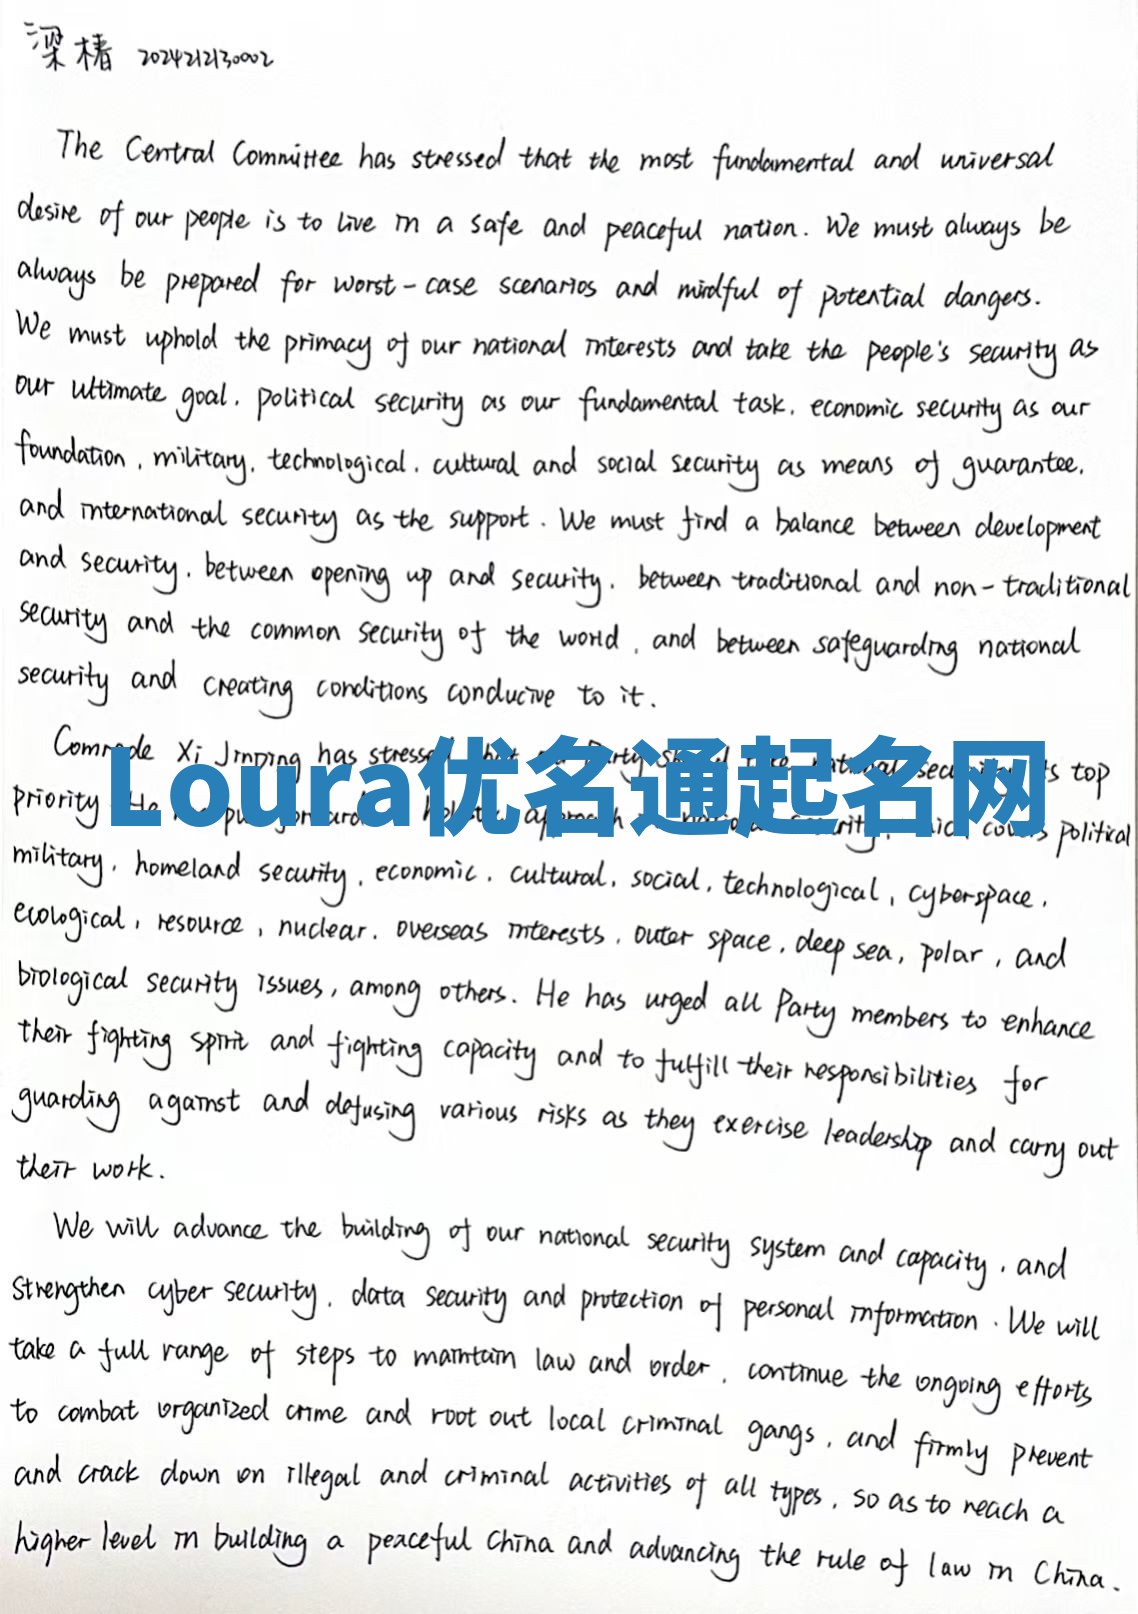 梁椿 2024212130002
The Central Committee has stressed that the most fundamental and universal
desire of our people is to live in a safe and peaceful nation. We must always be
always be prepared for worst-case scenarios and mindful of potential dangers.
We must uphold the primacy of our national interests and take the people's security as
our ultimate goal, political security as our fundamental task, economic security as our
foundation, military, technological, cultural and social security as means of guarantee,
and international security as the support. We must find a balance between development
and security, between opening up and security, between traditional and non-traditional
security and the common security of the world, and between safeguarding national
security and creating conditions conducive to it.
Comrade Xi Jinping has stressed Party national security its top
Loura优名通起名网
priority He put forward holistic approach national security, which covers political
military, homeland security, economic, cultural, social, technological, cyberspace,
ecological, resource, nuclear, overseas interests, outer space, deep sea, polar, and
biological security issues, among others. He has urged all Party members to enhance
their fighting spirit and fighting capacity and to fulfill their responsibilities for
guarding against and defusing various risks as they exercise leadership and carry out
their work.
We will advance the building of our national security system and capacity, and
strengthen cyber security, data security and protection of personal information. We will
take a full range of steps to maintain law and order, continue the ongoing efforts
to combat organized crime and root out local criminal gangs, and firmly prevent
and crack down on illegal and criminal activities of all types, so as to reach a
higher level in building a peaceful China and advancing the rule of law in China.